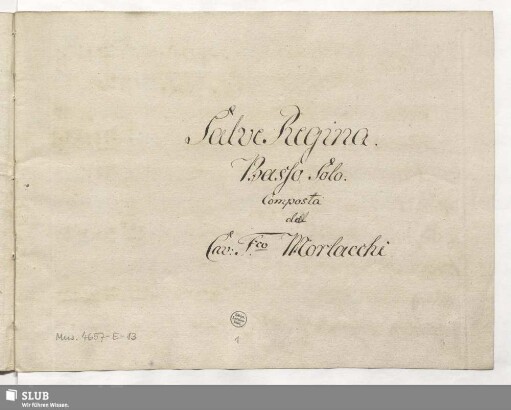 Salve Regina.
Basso Solo.
Composta
del
Cav: Fco Morlacchi
Mus. 4657-E-13
1
SLUB
Wir führen Wissen.